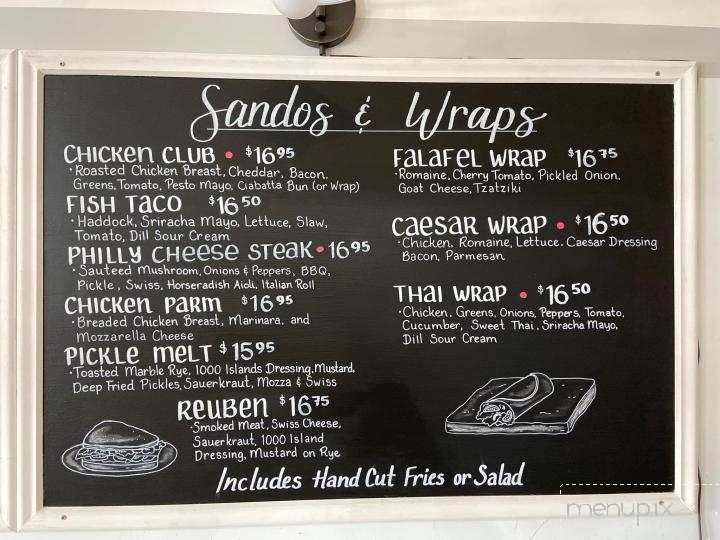 Sandos & Wraps
Chicken Club • $16.95
• Roasted Chicken Breast, Cheddar, Bacon,
Greens, Tomato, Pesto Mayo, Ciabatta Bun (or Wrap)
Fish Taco $16.50
• Haddock, Sriracha Mayo, Lettuce, Slaw,
Tomato, Dill Sour Cream
Philly Cheese Steak • 16.95
• Sauteed Mushroom, Onions & Peppers, BBQ,
Pickle, Swiss, Horseradish Aioli, Italian Roll
Chicken Parm $16.95
• Breaded Chicken Breast, Marinara, and
Mozzarella Cheese
Pickle Melt $15.95
• Toasted Marble Rye, 1000 Islands Dressing, Mustard,
Deep Fried Pickles, Sauerkraut, Mozza & Swiss
Reuben $16.75
• Smoked Meat, Swiss Cheese,
Sauerkraut, 1000 Island
Dressing, Mustard on Rye
Falafel Wrap $16.75
• Romaine, Cherry Tomato, Pickled Onion,
Goat Cheese, Tzatziki
Caesar Wrap • $16.50
• Chicken, Romaine, Lettuce, Caesar Dressing
Bacon, Parmesan
Thai Wrap • $16.50
• Chicken, Greens, Onions, Peppers, Tomato,
Cucumber, Sweet Thai, Sriracha Mayo,
Dill Sour Cream
Includes Hand Cut Fries or Salad
menupix